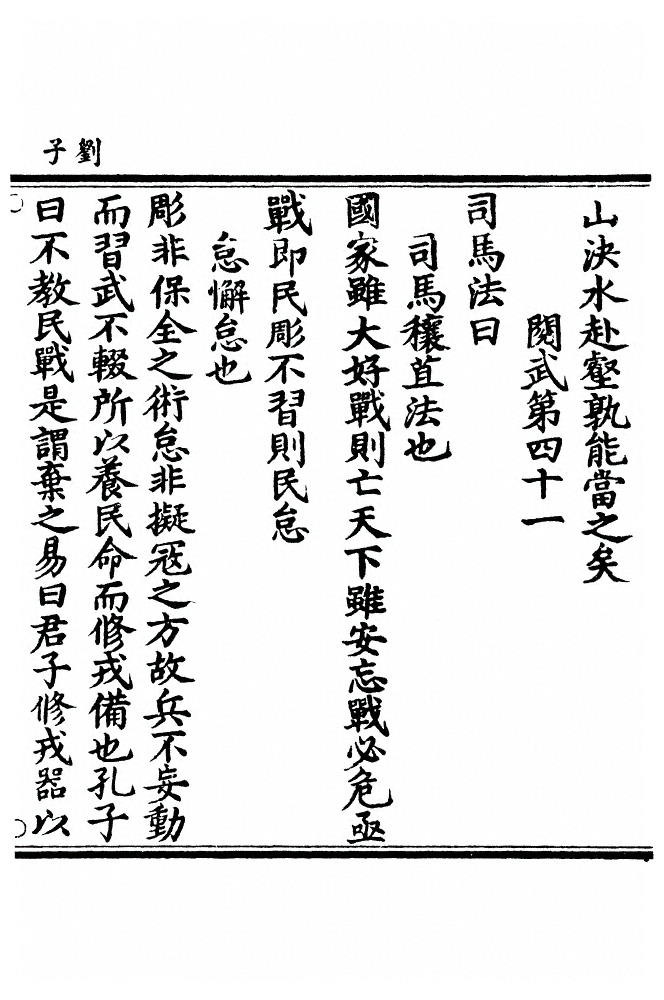 劉子
山決水赴壑孰能當之矣
閱武第四十一
司馬法曰
司馬穰苴法也
國家雖大好戰則亡天下雖安忘戰必危亟
戰即民彫不習則民怠
怠懈怠也
彫非保全之術怠非擬冦之方故兵不妄動
而習武不輟所以養民命而修戎備也孔子
曰不教民戰是謂棄之易曰君子修戎器以